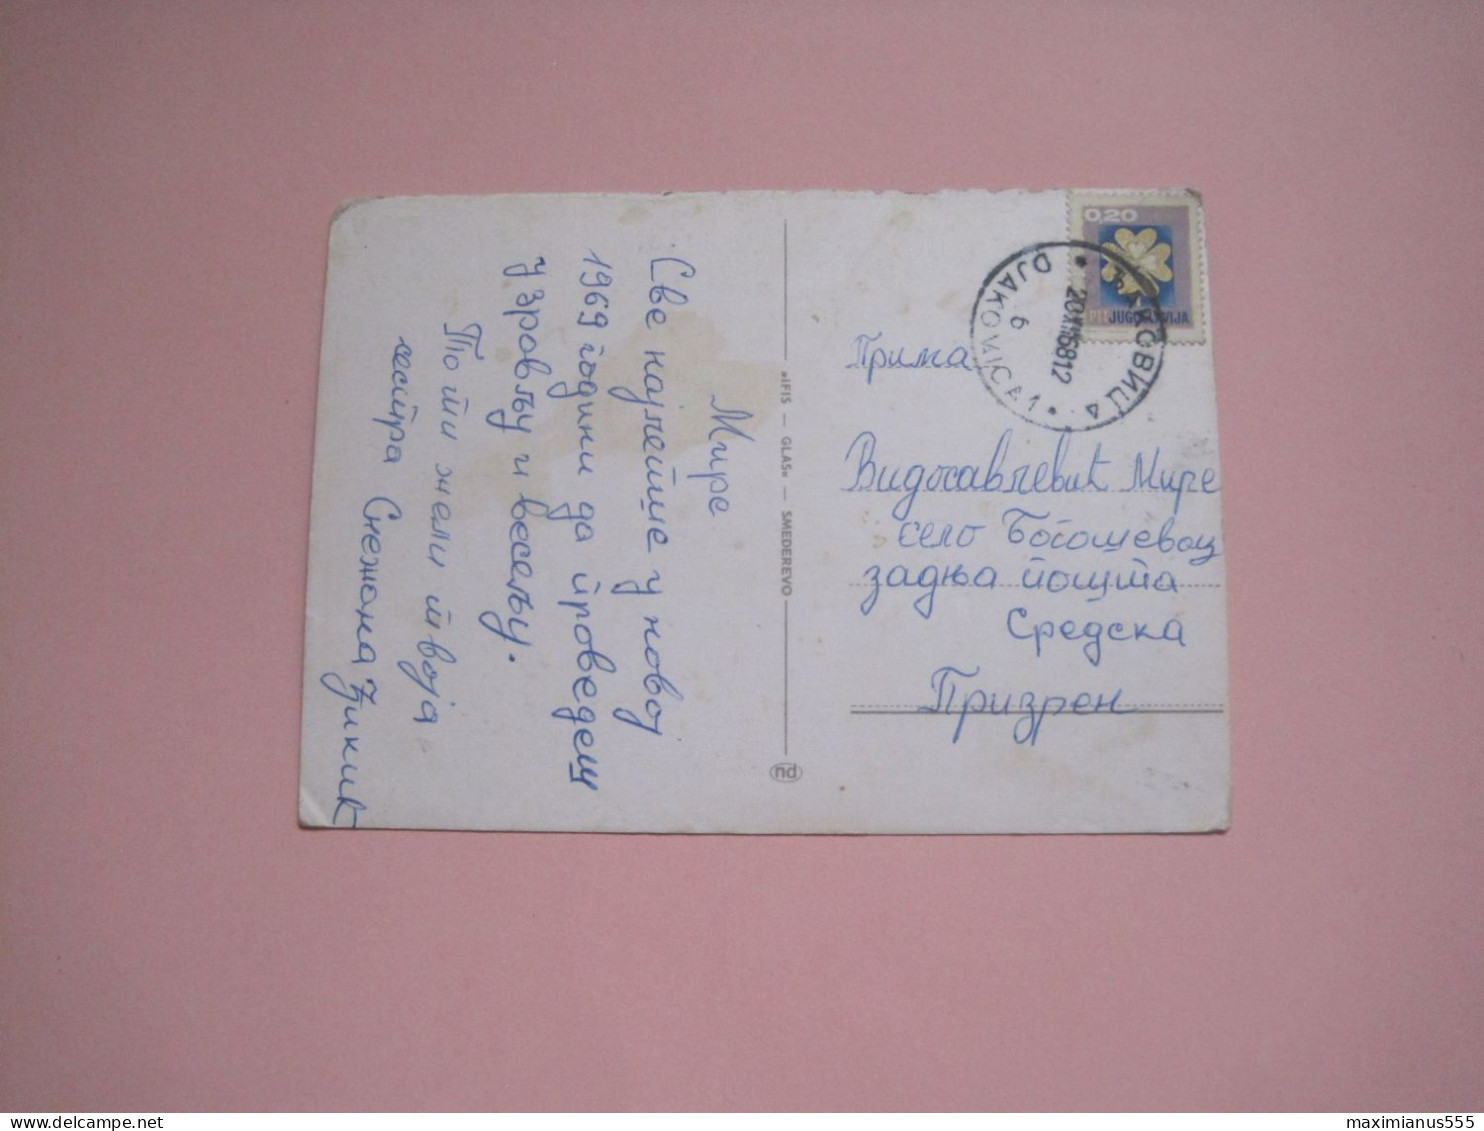 Мире
Све најлепше у новој
1969 години да проведеш
у зрављу и весељу.
То ти жели твоја
сестра Снежана Зикић
»IFIS — GLAS« — SMEDEREVO
nd
0,20
JUGOSLAVIJA
ЂАКОВИЦА
DJAKOVICA 1
20.XII.68 12
6
Прима
Видосављевић Мире
село Богошевац
задња пошта
Средска
Призрен
maximianus555